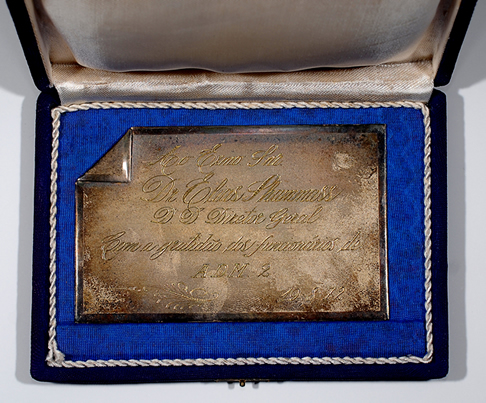 Ao Exmo Snr.
Dr. Elias Shammass
D. D. Diretor Geral
Com a gratidão dos funcionarios de
A.D.M. 2